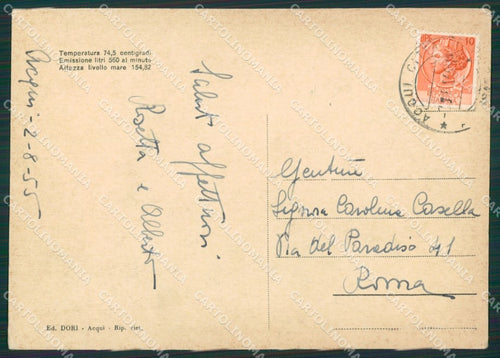 Temperatura 74,5 centigradi
Emissione litri 560 al minuto
Altezza livello mare 164,82
Acqui - 2-8-55
Saluti affettuosi
Rosetta e Alberto
10
ACQUI
Gentile
Signora Carolina Casella
Via del Paradiso 41
Roma
Ed. DORI - Acqui - Rip. viet.
CARTOLINOMANIA